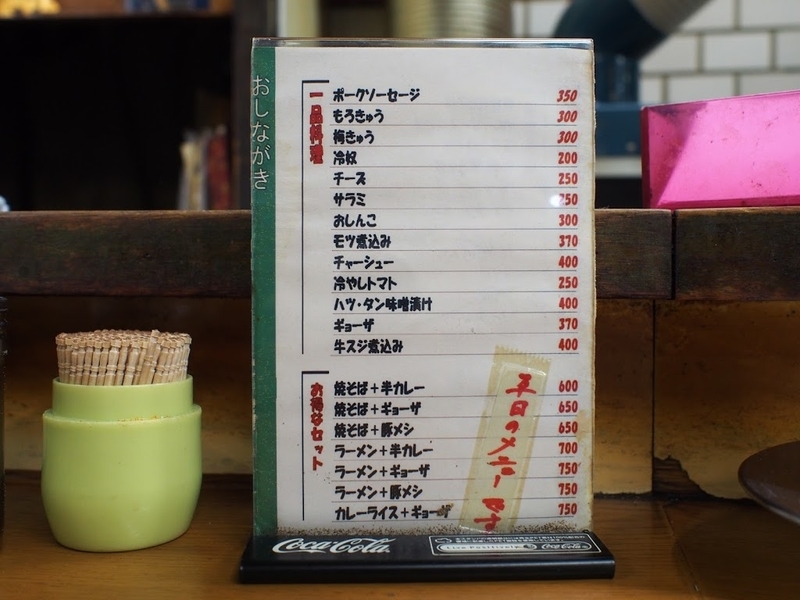 おしながき
一品料理
ポークソーセージ 350
もろきゅう 300
梅きゅう 300
冷奴 200
チーズ 250
サラミ 250
おしんこ 300
モツ煮込み 370
チャーシュー 400
冷やしトマト 250
ハツ・タン味噌漬け 400
ギョーザ 370
牛スジ煮込み 400
お得なセット
焼そば+半カレー 600
焼そば+ギョーザ 650
焼そば+豚メシ 650
ラーメン+半カレー 700
ラーメン+ギョーザ 750
ラーメン+豚メシ 750
カレーライス+ギョーザ 750
平日のメニューです
Coca-Cola
Live Positively
Coca-Cola